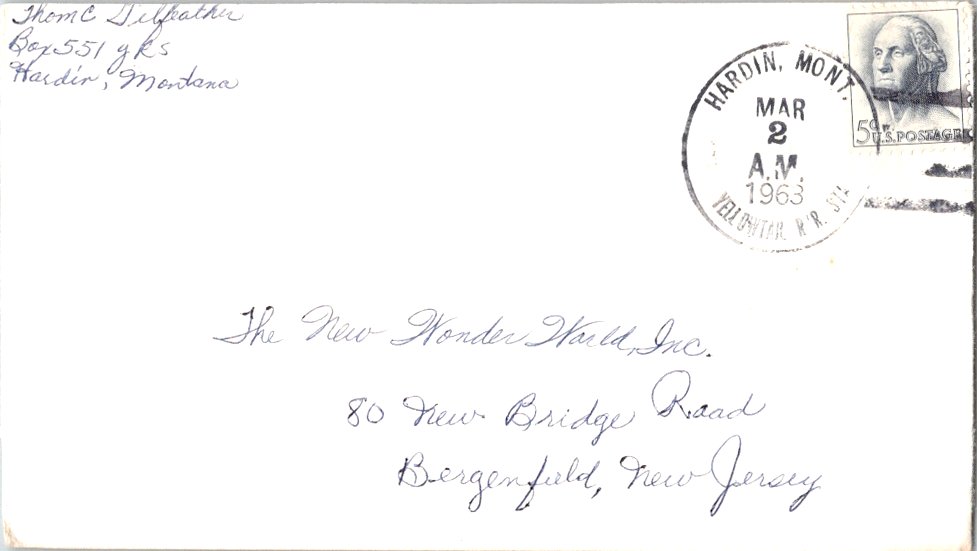 Thom C Gilfeather
Box 551 y R s
Hardin, Montana
HARDIN, MONT.
MAR
2
A.M.
1963
YELLOWTAIL R'R. STA
5c U.S. POSTAGE
The New Wonder World, Inc.
80 New Bridge Road
Bergenfield, New Jersey